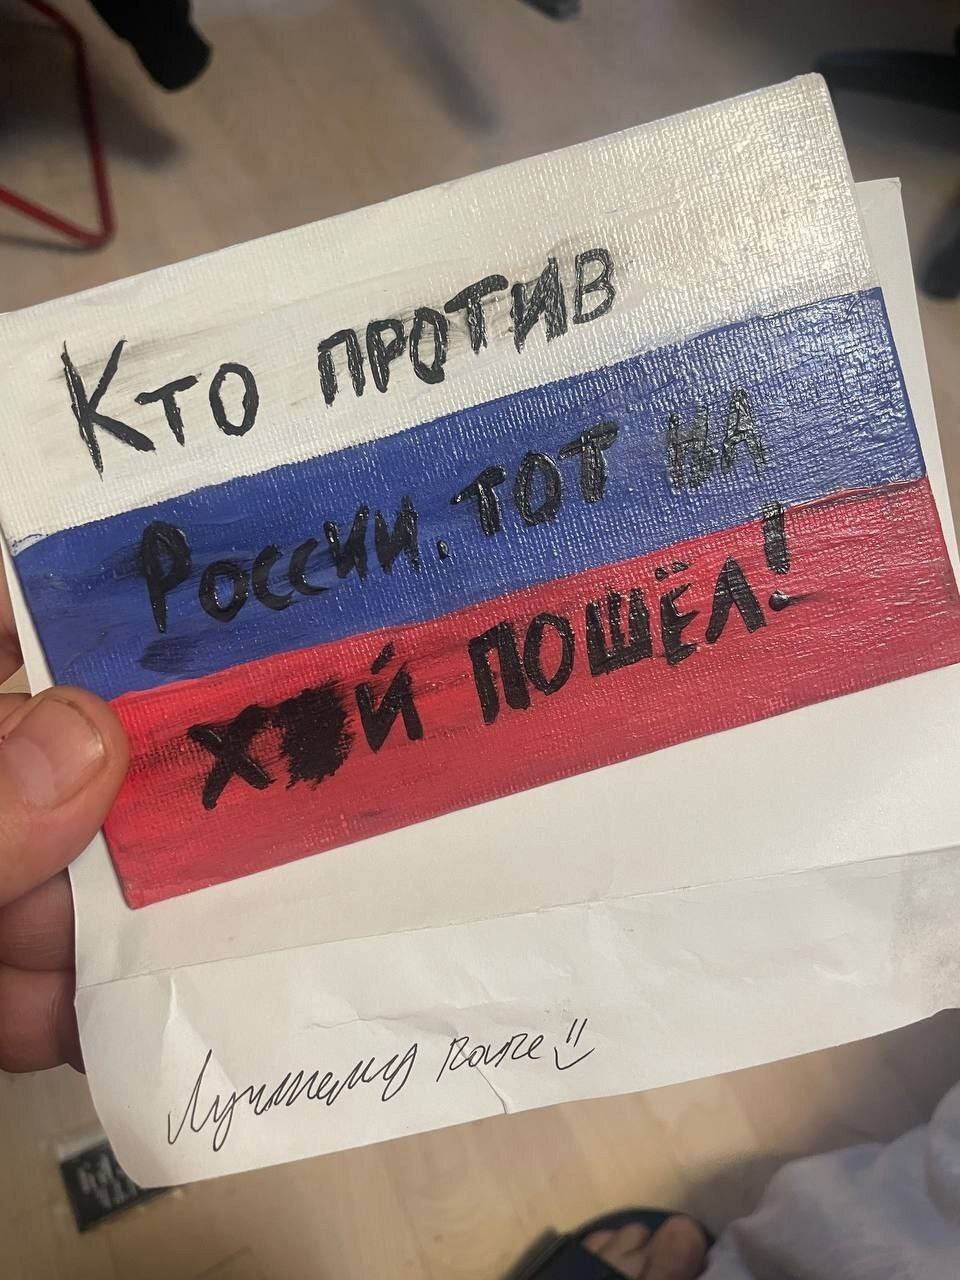 Кто против
России. тот на
х🞄й пошёл!
Лучшему папе